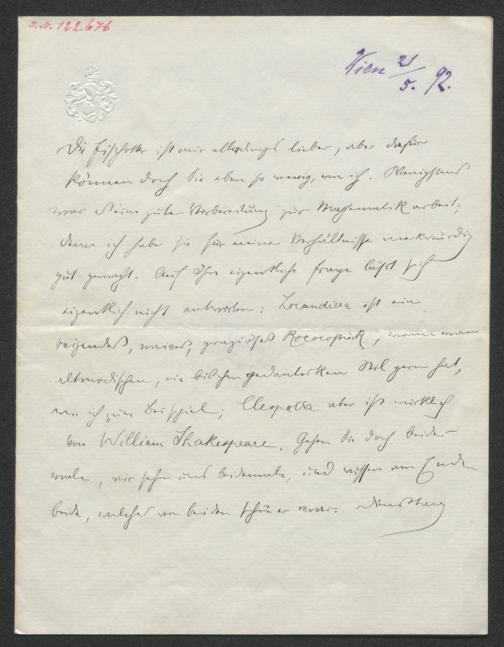 I.N. 122.676
Wien 21/5. 92.
Die Fischotter ist mir allerdings lieber, aber dafür
können doch Sie eben so wenig, wie ich. Wenigstens
war es eine gute Vorbereitung zur Mathematik arbeit;
denn ich habe sie für meine Verhältnisse merkwürdig
gut gemacht. Auf Ihre eigentliche Frage läßt sich
eigentlich nicht antworten: Locandiera ist ein
reizendes, naives, graziöses Rococostück, wenn man
altmodischen, ein bischen pedantischen Stil gern hat,
wie ich zum Beispiel; Cleopatra aber ist wirklich
von William Shakespeare. Gehen Sie doch beide-
male, wir sehn uns beidemale, und wissen am Ende
beide, welches von beiden schöner war.